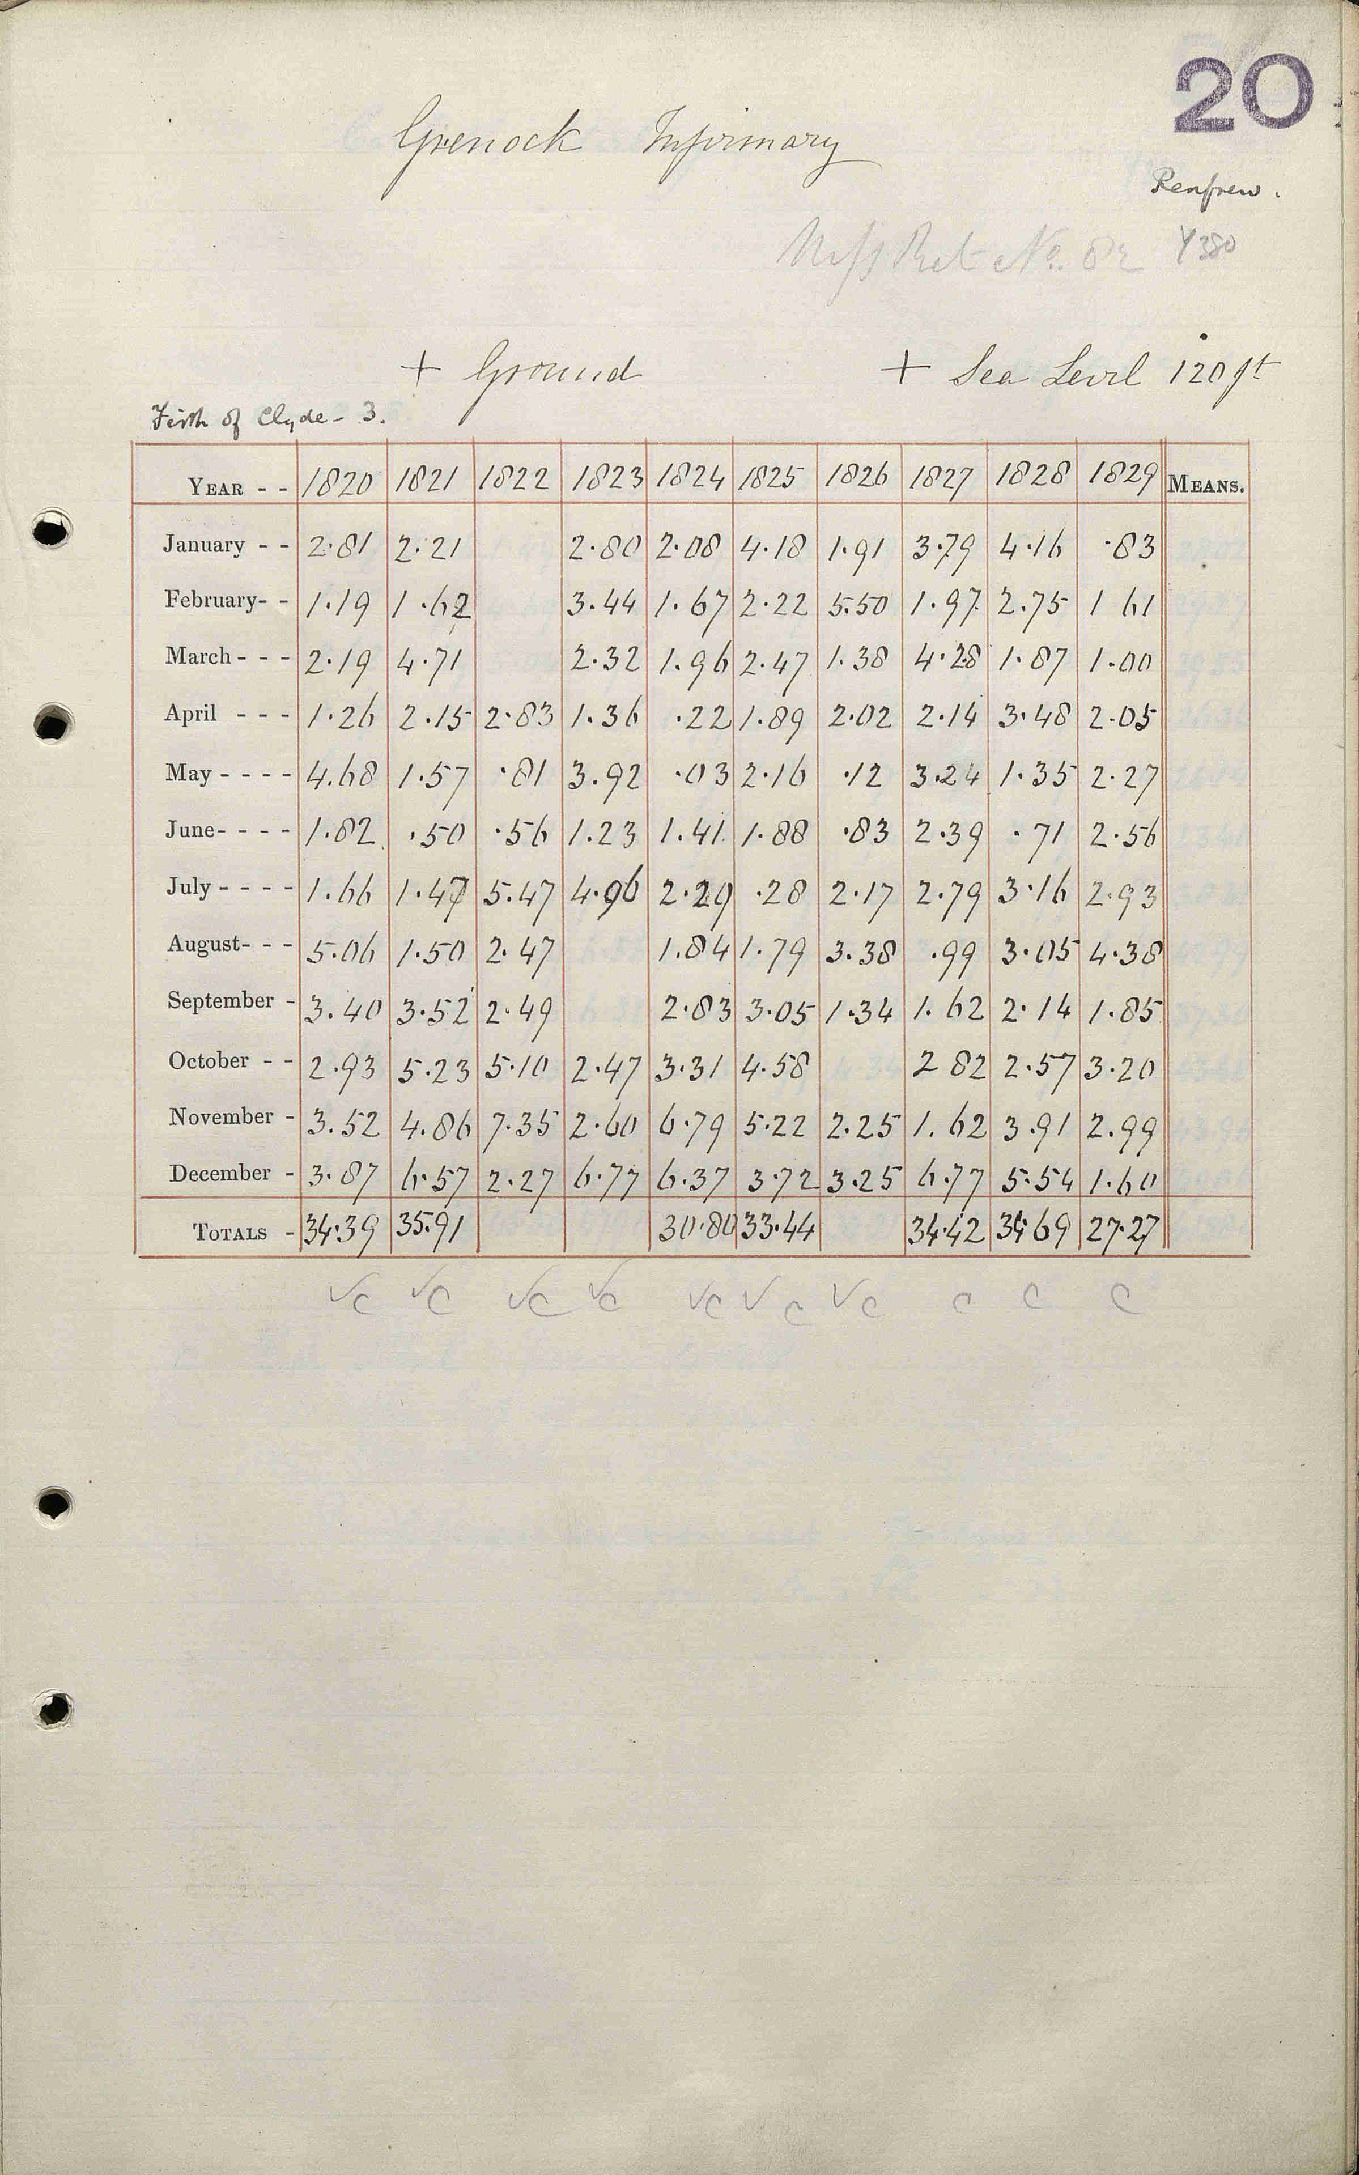 20
Grenock Infirmary
Renfrew.
Ref No. 82 Y380
+ Ground + Sea Level 120 ft
Firth of Clyde - 3.
YEAR - - 1820 1821 1822 1823 1824 1825 1826 1827 1828 1829 MEANS.
January - - 2.81 2.21 2.80 2.08 4.18 1.91 3.79 4.16 .83
February- - 1.19 1.62 3.44 1.67 2.22 5.50 1.97 2.75 1 61
March - - - 2.19 4.71 2.32 1.96 2.47 1.38 4.28 1.87 1.00
April - - - 1.26 2.15 2.83 1.36 .22 1.89 2.02 2.14 3.48 2.05
May - - - - 4.68 1.57 .81 3.92 .03 2.16 .12 3.24 1.35 2.27
June- - - - 1.82 .50 .56 1.23 1.41 1.88 .83 2.39 .71 2.56
July - - - - 1.66 1.47 5.47 4.96 2.29 .28 2.17 2.79 3.16 2.93
August- - - 5.06 1.50 2.47 1.84 1.79 3.38 .99 3.05 4.38
September - 3.40 3.52 2.49 2.83 3.05 1.34 1.62 2.14 1.85
October - - 2.93 5.23 5.10 2.47 3.31 4.58 2 82 2.57 3.20
November - 3.52 4.86 7.35 2.60 6.79 5.22 2.25 1.62 3.91 2.99
December - 3.87 6.57 2.27 6.77 6.37 3.72 3.25 6.77 5.54 1.60
TOTALS - 34.39 35.91 30.80 33.44 34.42 34.69 27.27
√c √c √c √c √c √c √c c c c